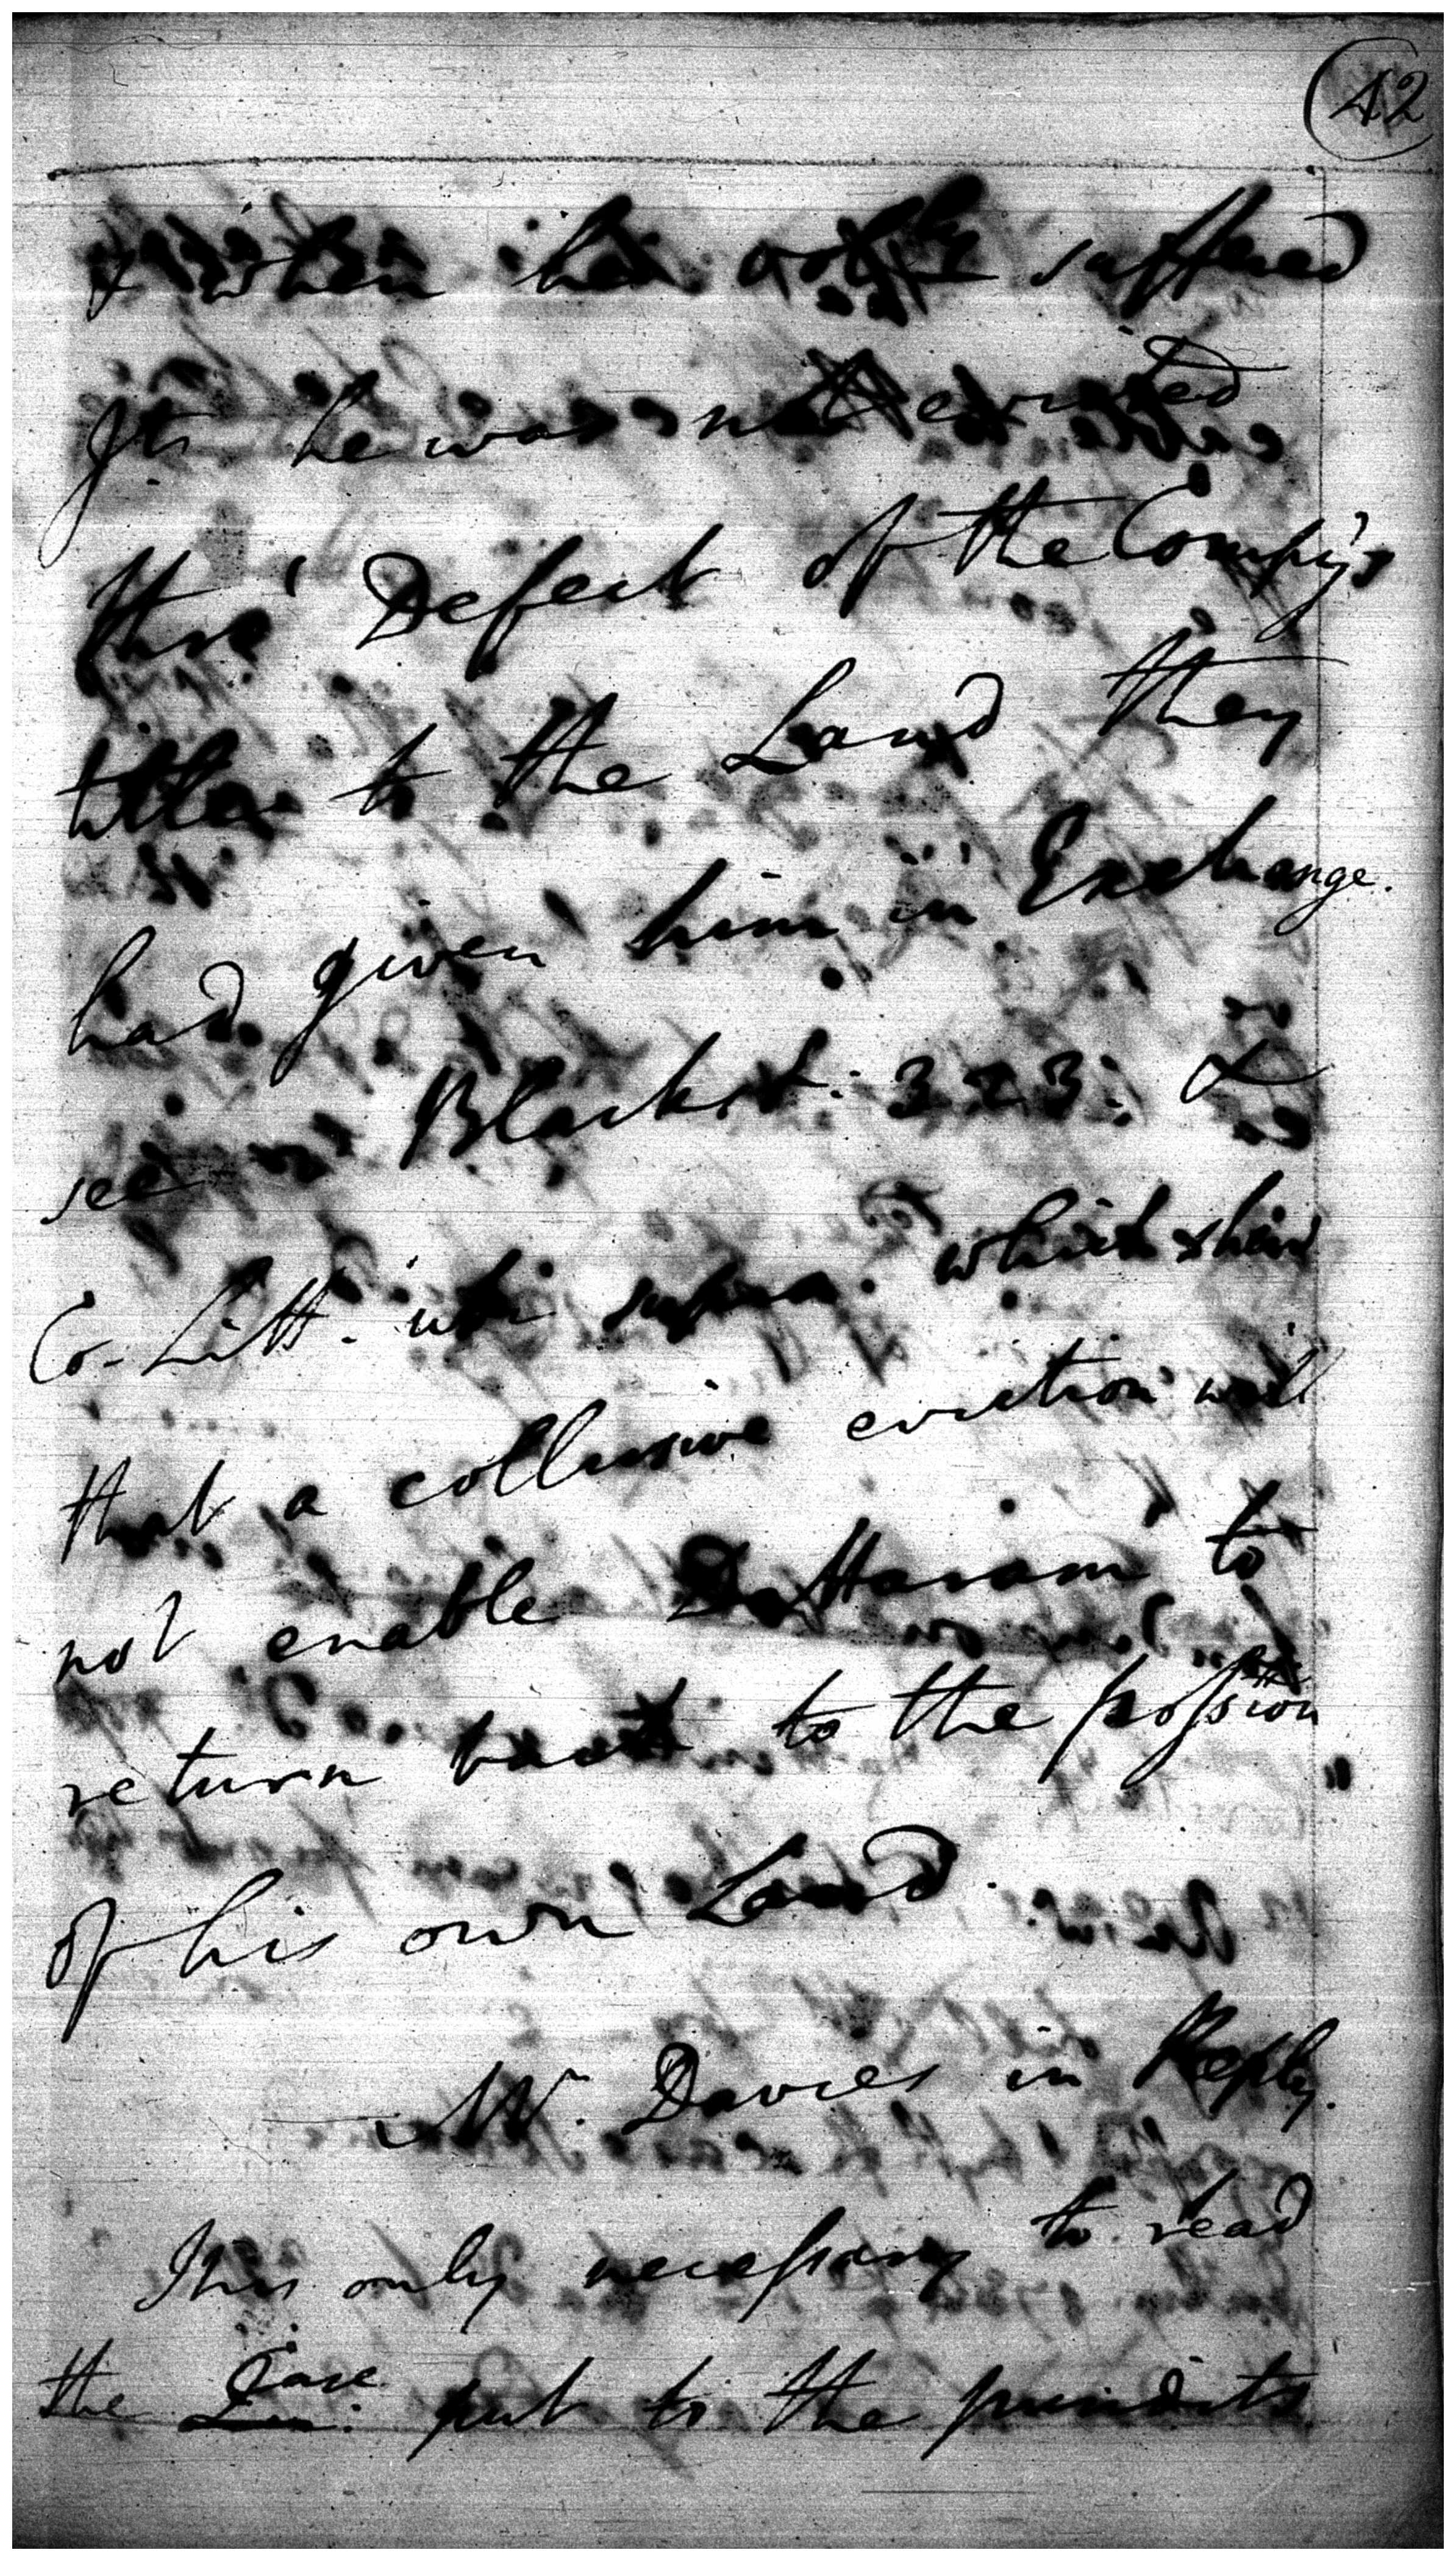 42
& when he only suffered
Jt. he was not evicted
thro' Defect of the Compy's
title to the Land they
had given him in Exchange.
see Blackst: 323: &
Co. Litt. ubi supra. which shew
that a collusive eviction will
not enable Dattaram to
return back to the possion
of his own Land.
Mr. Davies in Reply.
It is only necessary to read
the Case put to the pundits